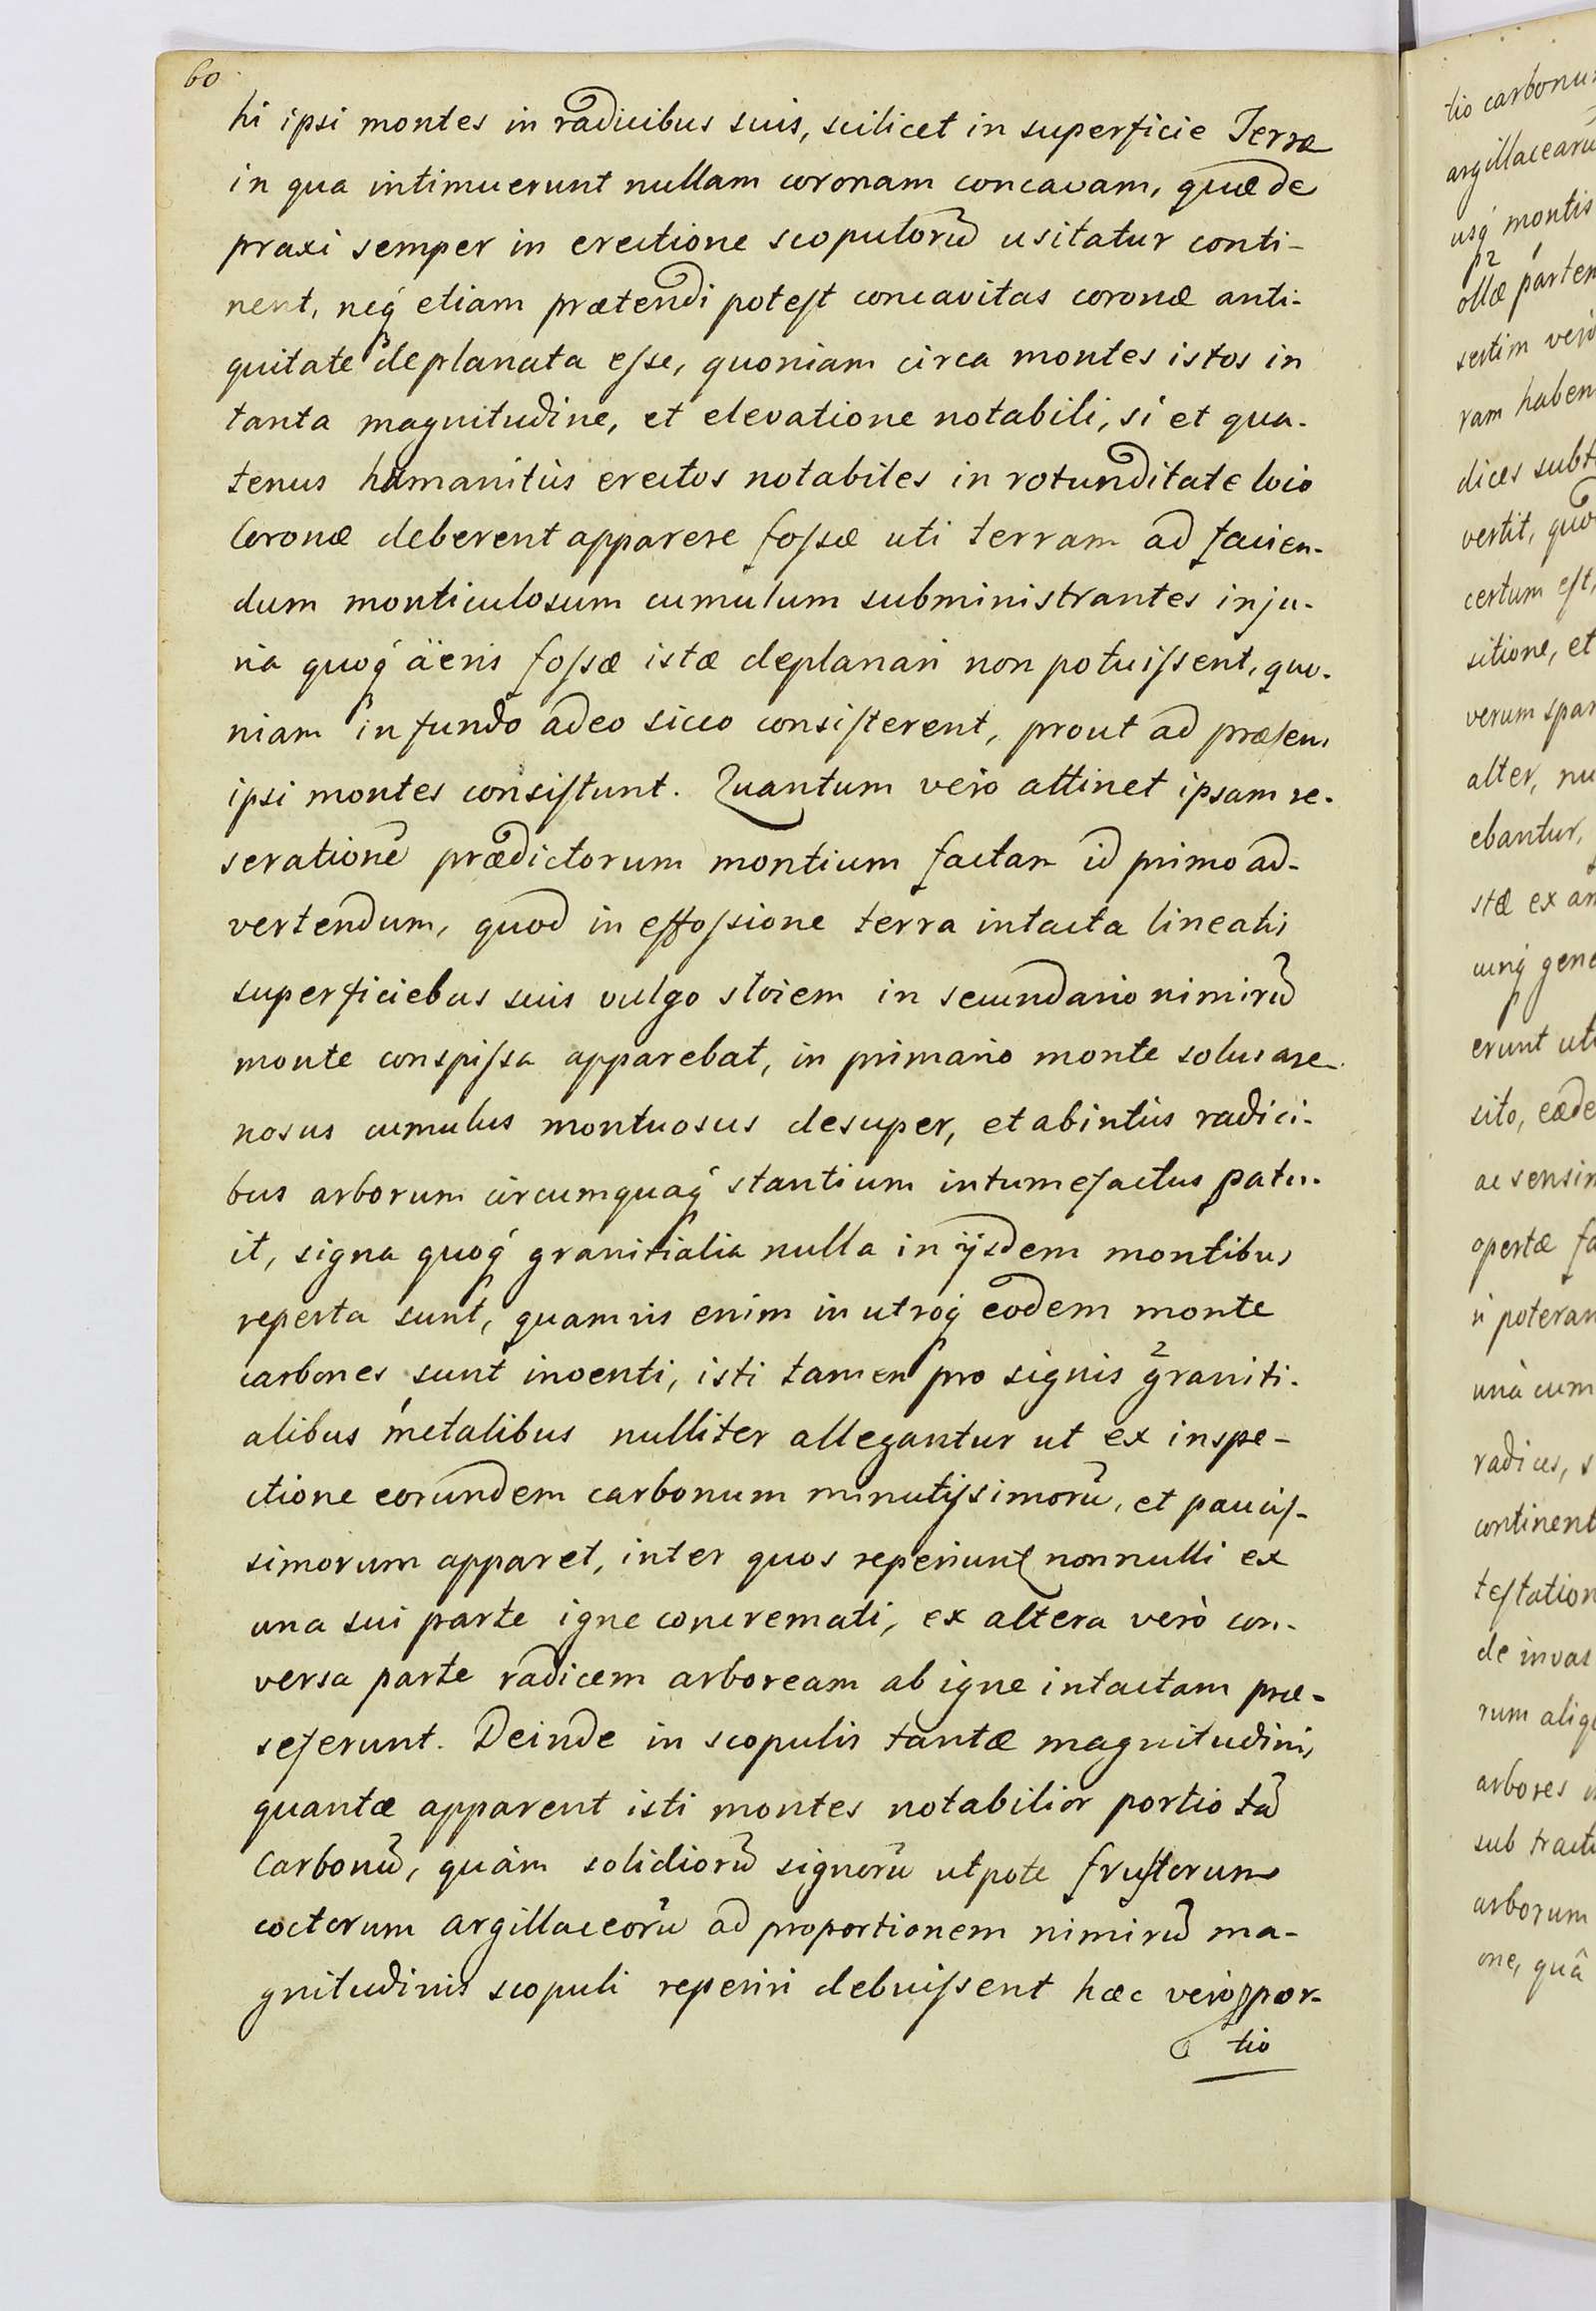 60
hi ipsi montes in radicibus suis, scilicet in superficie Terræ
in qua intimuerunt nullam coronam concavam, quæ de
praxi semper in erectione scopulorũ usitatur conti-
nent, neq́ etiam prætendi potest concavitas coronæ anti-
quitate deplanata esse, quoniam circa montes istos in
tanta magnitudine, et elevatione notabili, si et qua-
tenus humanitùs erectos notabiles in rotunditate loco
Coronæ deberent apparere fossæ uti terram ad facien-
dum monticulosum cumulum subministrantes inju-
ria quoq́ äeris fossæ istæ deplanari non potuissent, quo-
niam in fundo adeo sicco consisterent, prout ad præsens
ipsi montes consistunt. Quantum vero attinet ipsam re-
serationẽ prædictorum montium factam id primo ad-
vertendum, quod in effossione terra intacta lineatis
superficiebus suis vulgo stoiem in secundario nimirũ
monte conspissa apparebat, in primario monte solus are-
nosus cumulus montuosus desuper, et abintùs radici-
bus arborum circumquaq́ stantium intumefactus patu-
it, signa quoq́ granitialia nulla in ijsdem montibus
reperta sunt, quamvis enim in utroq́ eodem monte
carbones sunt inventi, isti tamen pro signis 2 graniti-
alibus 1 metalibus nulliter allegantur ut ex inspe-
ctione eorundem carbonum minutissimorũ, et paucis-
simorum apparet, inter quos reperiunt nonnulli ex
una sui parte igne concremati, ex altera verò con-
versa parte radicem arboream ab igne intactam præ-
seferunt. Deinde in scopulis tantæ magnitudinis
quantæ apparent isti montes notabilior portio tã
Carbonũ, quàm solidiorũ signorũ utpote frustorum
coctorum argillaceorũ ad proportionem nimirũ ma-
gnitudinis scopuli reperiri debuissent hæc vero por-
tio
tio carbonu
argillacearũ
usq́ montis
ollæ partem
ram haben
dices subt
vertit, quo
certum est,
sitione, et
verum spar
alter, nu
ebantur,
stæ ex an
cunq́ gene
erunt uti
sito, eæde
ac sensim
opertæ fa
ri poteran
unà cum
radices, s
continent
testation
de invas
rum aliq
arbores
sub tractu
arborum
one, quâ